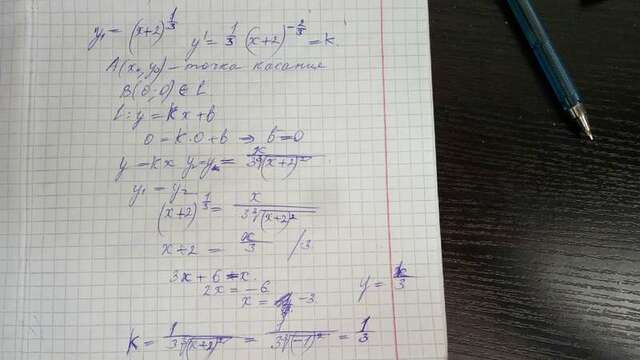 y₁ = (x+2)^{1/3} y' = 1/3 (x+2)^{-2/3} = k.
A(x₀, y₀) - точка касания
B(0,0) ∈ L.
L: y = kx + b
0 = k·0 + b ⇒ b = 0
y = kx y₂ = x/(3∛(x+2)²)
y₁ = y₂
(x+2)^{1/3} = x/(3∛(x+2)²)
x+2 = x/3 /·3
3x + 6 = x.
2x = -6
x = -3 y = x/3
k = 1/(3∛(x+2)²) = 1/(3∛(-1)²) = 1/3